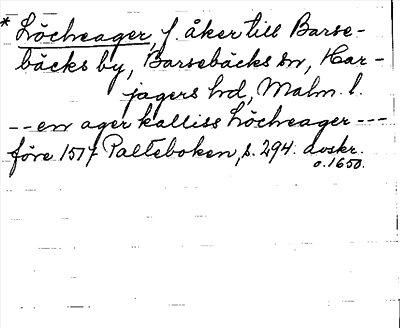 * Löchæager, f. åker till Barse-
bäcks by, Barsebäcks sn, Har-
jagers hd, Malm. l.
-- en ager kalliss Löchæager ---
före 1517 Palteboken, s. 294. avskr.
o. 1650.